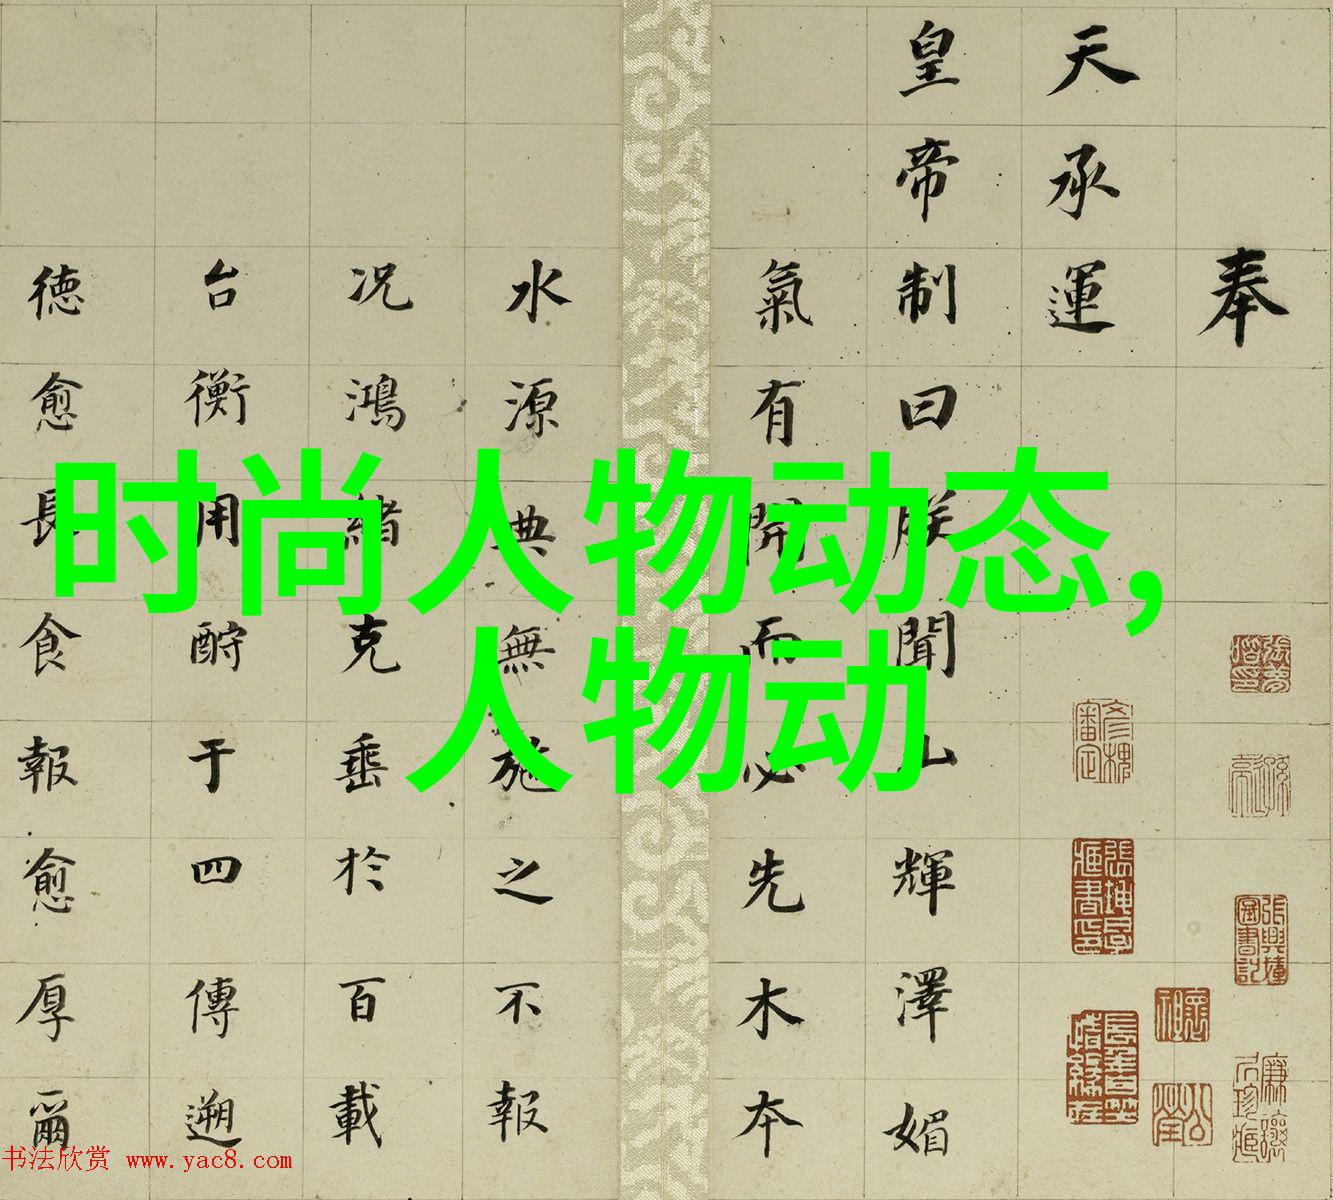 奉
天承運
皇帝制曰朕聞山輝澤媚
氣有開而必先木本
水源典無施之不報
况鴻緒克垂於百載
台衡用酹于四傳遡
德愈長食報愈厚爾
时尚人物动态,
人物动
书法欣赏 www.yac8.com